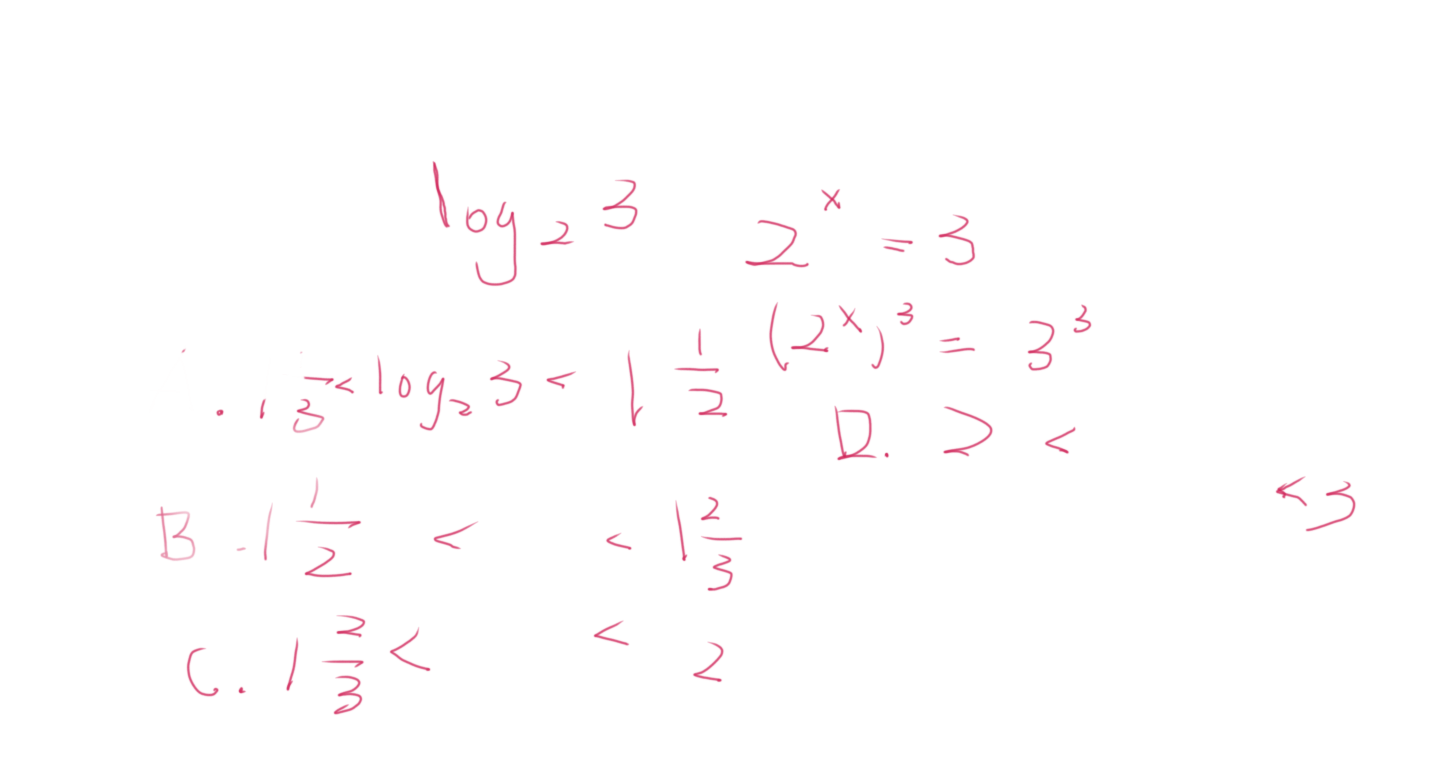 log₂ 3   2^x = 3
(2^x)^3 = 3^3
< log₂ 3 < 1 1/2
D. 2 <   < 3
B. 1 1/2 <   < 1 2/3
C. 1 2/3 <   < 2